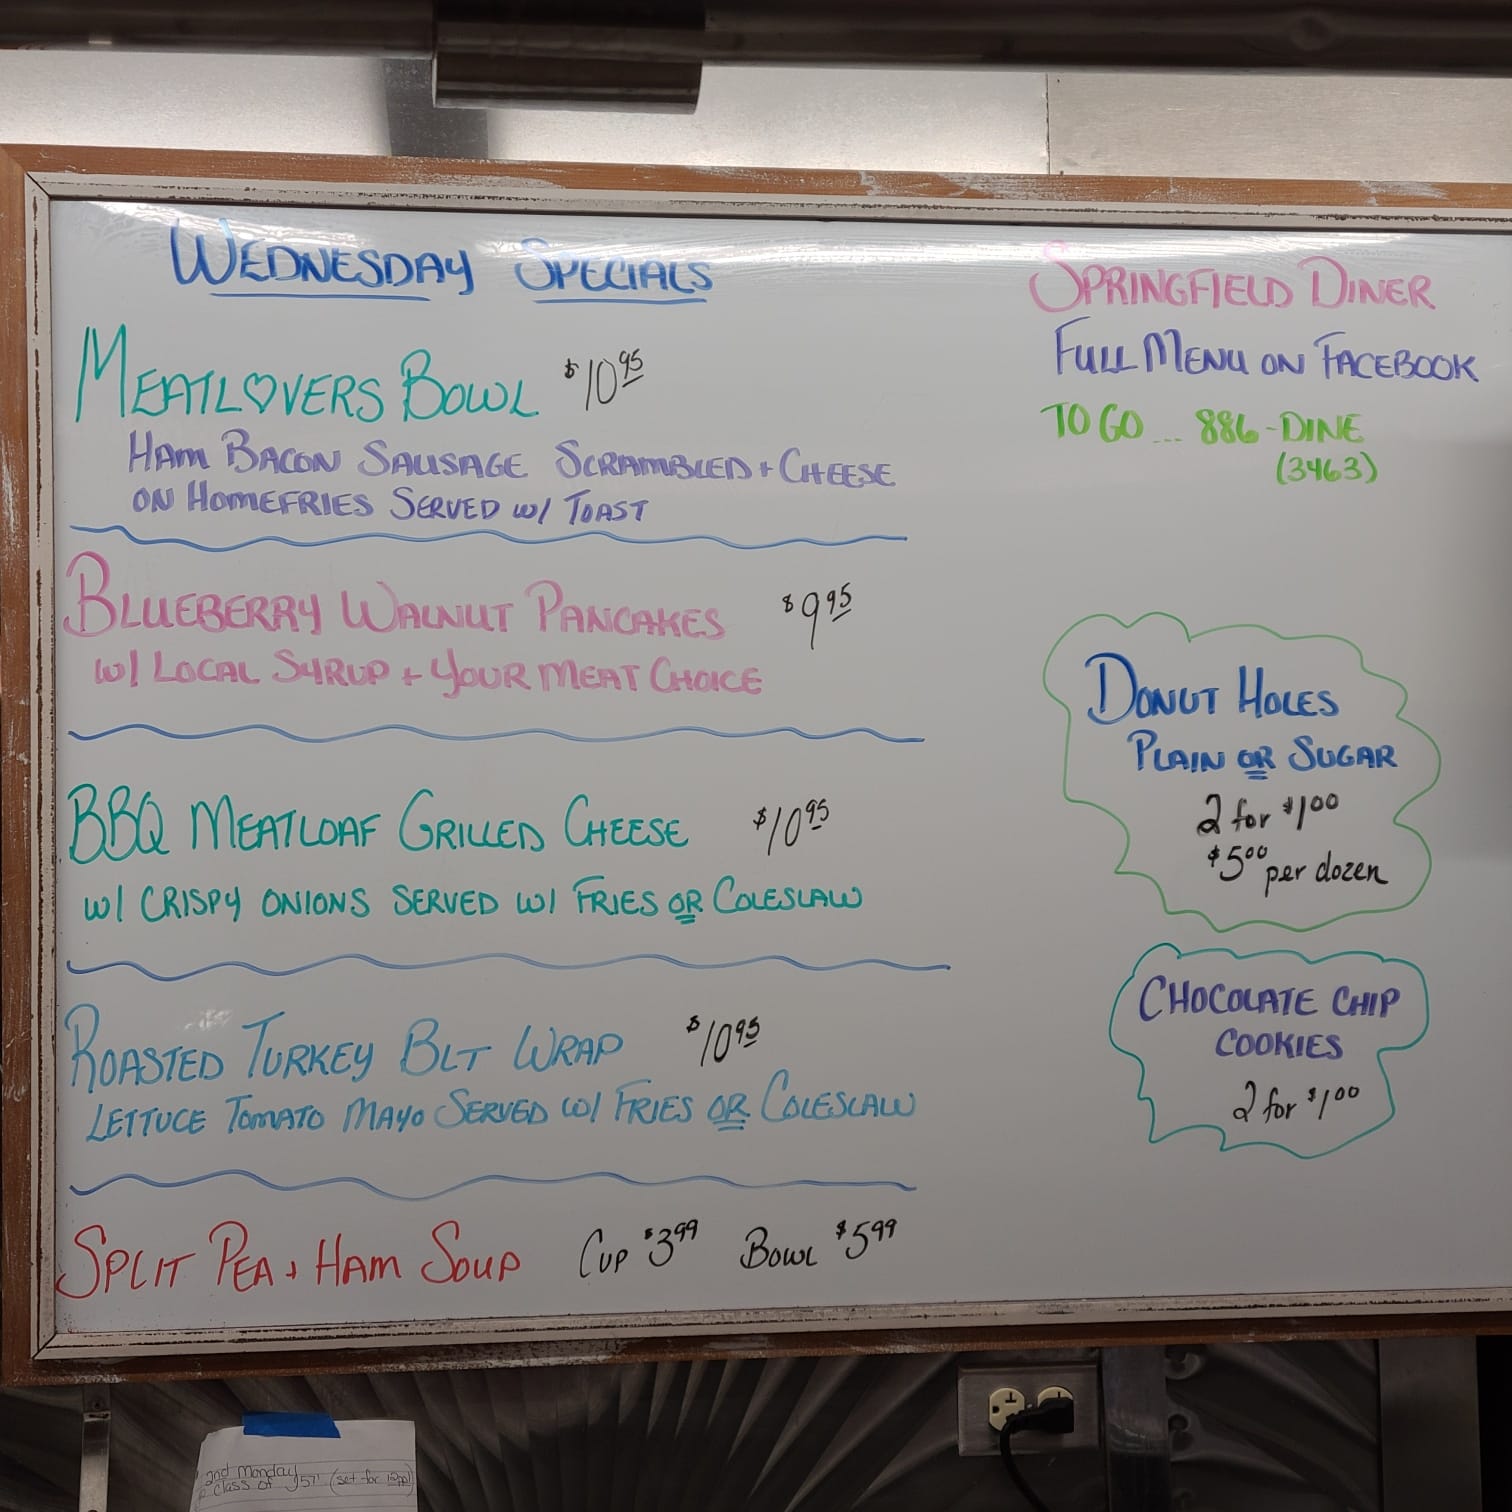 WEDNESDAY SPECIALS
MEATL♡VERS BOWL $10.95
HAM BACON SAUSAGE SCRAMBLED + CHEESE
ON HOMEFRIES SERVED W/ TOAST
BLUEBERRY WALNUT PANCAKES $9.95
W/ LOCAL SYRUP + YOUR MEAT CHOICE
BBQ MEATLOAF GRILLED CHEESE $10.95
W/ CRISPY ONIONS SERVED W/ FRIES OR COLESLAW
ROASTED TURKEY BLT WRAP $10.95
LETTUCE TOMATO MAYO SERVED W/ FRIES OR COLESLAW
SPLIT PEA + HAM SOUP CUP $3.99 BOWL $5.99
SPRINGFIELD DINER
FULL MENU ON FACEBOOK
TO GO ... 886-DINE
(3463)
DONUT HOLES
PLAIN OR SUGAR
2 for $1.00
$5.00 per dozen
CHOCOLATE CHIP
COOKIES
2 for $1.00
2nd Monday
class of (set for